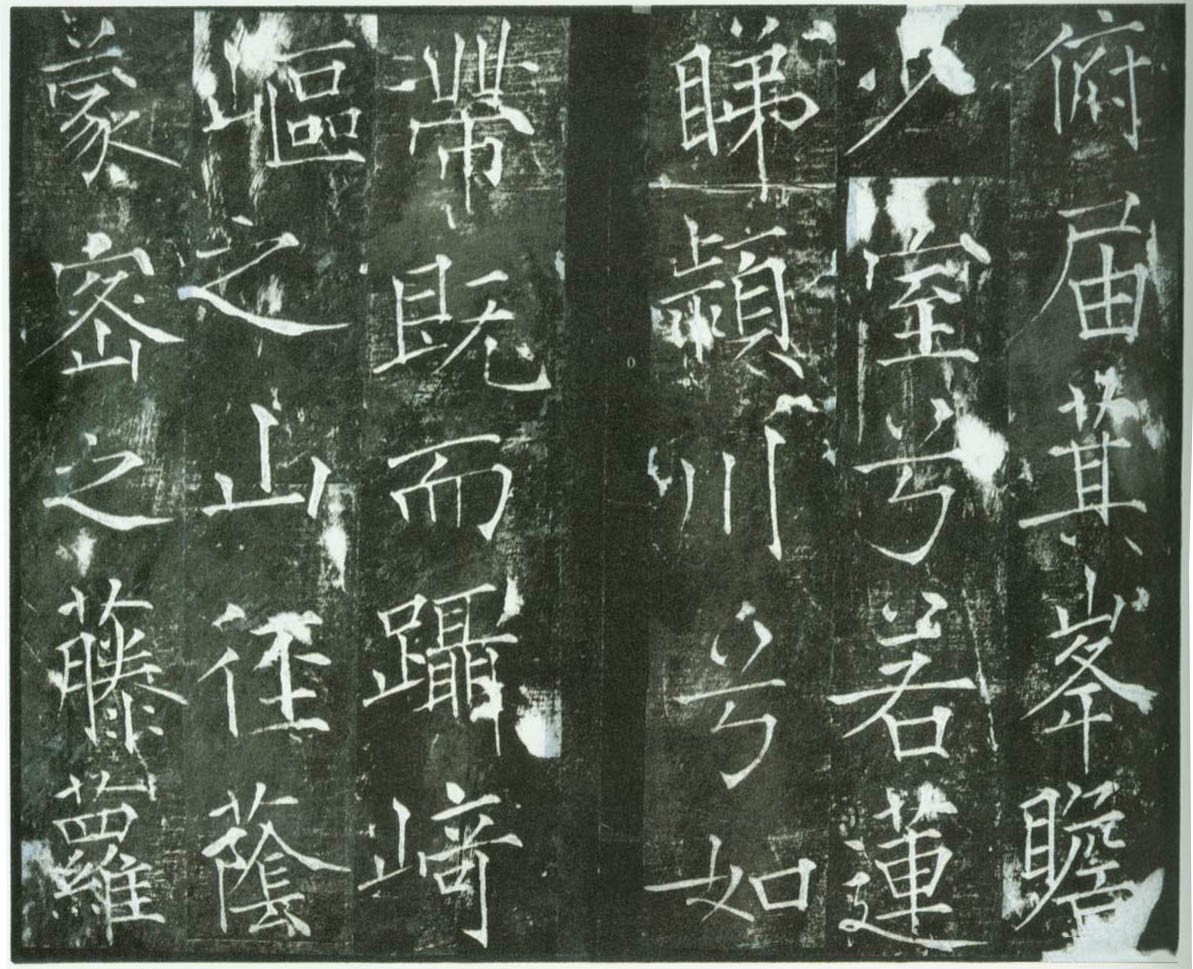 俯屆其峯瞻
少室兮若蓮
睇潁川兮如
帶既而躡崎
嶇之山徑蔭
蒙密之藤蘿